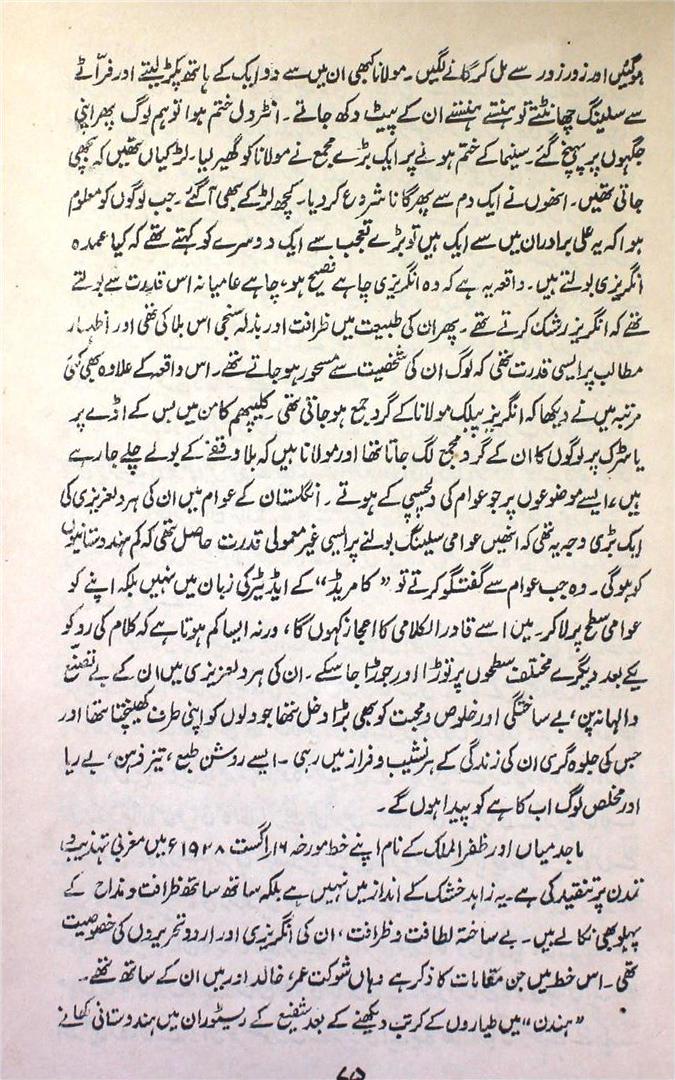 ہوگئیں اور زور زور سے مل کر گانے لگیں۔ مولانا کبھی ان میں سے دو ایک کے ہاتھ پکڑ لیتے اور فراٹے
سے سلینگ چھانٹتے تو ہنستے ہنستے ان کے پیٹ دکھ جاتے۔ انٹرول ختم ہوا تو ہم لوگ پھر اپنی
جگہوں پر پہنچ گئے۔ سنیما کے ختم ہونے پر ایک بڑے مجمع نے مولانا کو گھیر لیا۔ لڑکیاں تھیں کہ بچھی
جاتی تھیں۔ انھوں نے ایک دم سے پھر گانا شروع کر دیا۔ کچھ لڑکے بھی آ گئے۔ جب لوگوں کو معلوم
ہوا کہ یہ علی برادران میں سے ایک ہیں تو بڑے تعجب سے ایک دوسرے کو کہتے تھے کہ کیا عمدہ
انگریزی بولتے ہیں۔ واقعہ یہ ہے کہ وہ انگریزی چاہے فصیح ہو، چاہے عامیانہ اس قدرت سے بولتے
تھے کہ انگریز رشک کرتے تھے۔ پھر ان کی طبیعت میں ظرافت اور بذلہ سنجی اس بلا کی تھی اور اظہار
مطالب پر ایسی قدرت تھی کہ لوگ ان کی شخصیت سے مسحور ہو جاتے تھے۔ اس واقعہ کے علاوہ بھی کئی
مرتبہ میں نے دیکھا کہ انگریز پبلک مولانا کے گرد جمع ہو جاتی تھی۔ کلیپھم کامن میں بس کے اڈے پر
یا سڑک پر لوگوں کا ان کے گرد مجمع لگ جاتا تھا اور مولانا ہیں کہ بلا وقفے کے بولے چلے جا رہے
ہیں، ایسے موضوعوں پر جو عوام کی دلچسپی کے ہوتے۔ انگلستان کے عوام میں ان کی ہر دلعزیزی کی
ایک بڑی وجہ یہ تھی کہ انھیں عوامی سلینگ بولنے پر ایسی غیر معمولی قدرت حاصل تھی کہ کم ہندوستانیوں
کو ہوگی۔ وہ جب عوام سے گفتگو کرتے تو ”کامریڈ“ کے ایڈیٹر کی زبان میں نہیں بلکہ اپنے کو
عوامی سطح پر لا کر۔ میں اسے قادر الکلامی کا اعجاز کہوں گا، ورنہ ایسا کم ہوتا ہے کہ کلام کی رو کو
یکے بعد دیگرے مختلف سطحوں پر توڑا اور جوڑا جا سکے۔ ان کی ہر دلعزیزی میں ان کے بے تصنع
والہانہ پن، بے ساختگی اور خلوص و محبت کو بھی بڑا دخل تھا جو دلوں کو اپنی طرف کھینچتا تھا اور
جس کی جلوہ گری ان کی زندگی کے ہر نشیب و فراز میں رہی۔ ایسے روشن طبع، تیز ذہن، بے ریا
اور مخلص لوگ اب کاہے کو پیدا ہوں گے۔
ماجد میاں اور ظفر الملک کے نام اپنے خط مورخہ ۱۶ اگست ۱۹۲۸ء میں مغربی تہذیب و
تمدن پر تنقید کی ہے۔ یہ زاہد خشک کے انداز میں نہیں ہے بلکہ ساتھ ساتھ ظرافت و مذاح کے
پہلو بھی نکالے ہیں۔ بے ساختہ لطافت و ظرافت، ان کی انگریزی اور اردو تحریروں کی خصوصیت
تھی۔ اس خط میں جن مقامات کا ذکر ہے وہاں شوکت عمر، خالد اور میں ان کے ساتھ تھے۔
”ہنڈن“ میں طیاروں کے کرتب دیکھنے کے بعد شفیع کے ریسٹوران میں ہندوستانی کھانے